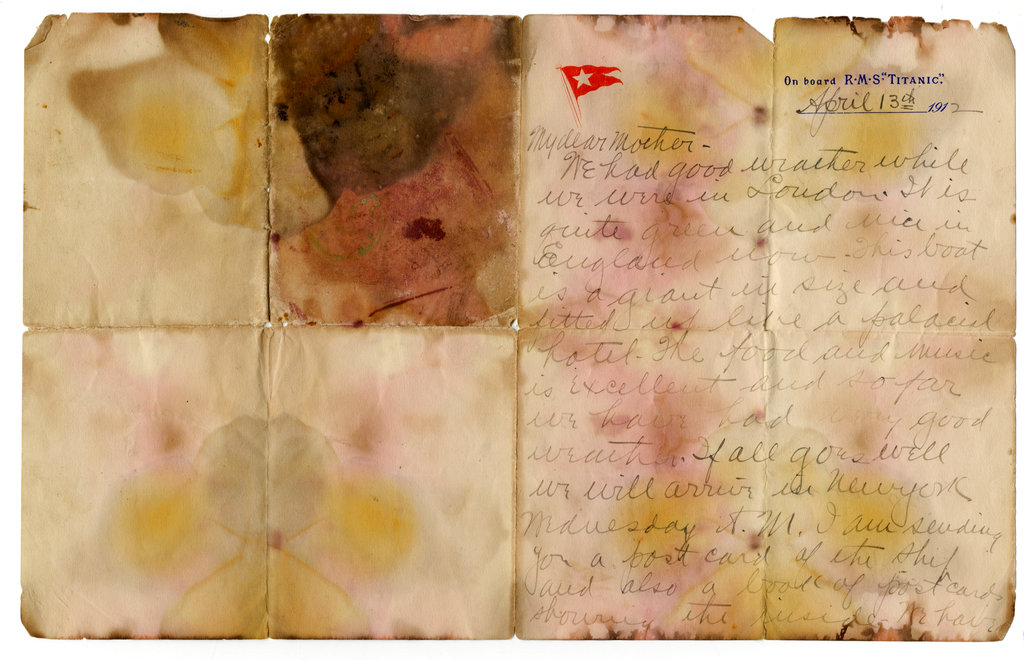 On board R·M·S "TITANIC".
April 13th 1912
My dear Mother -
We had good weather while
we were in London. It is
quite green and nice in
England now. This boat
is a giant in size and
fitted up like a palacial
hotel. The food and music
is excellent and so far
we have had very good
weather. If all goes well
we will arrive in New York
Wednesday A.M. I am sending
you a post card of the ship
and also a book of post cards
showing the inside. We have